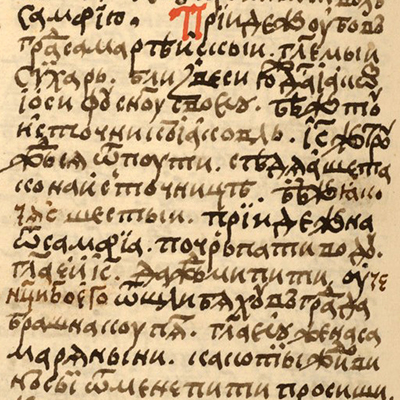 самарїю. Прїидежоубовъ
градсамартьйскыи. глемый
сухарь. близвеси юдадїаковъ
їосифусноусвоемꙋ. бѣжетꙋ
источникїаковль. їс жетрꙋ
жься ѿпоути. сѣдяшета
конаисточницѣ. бѣжеяко
час шестыи. прїидежена
ѿсамарїа. почрьпативодꙋ.
глаейїс. даждьмипити, оуче
нцибоего ѿшлибяхꙋвъграда
брашнакоупя. глаемꙋженаса
маряныни. какотыжидови
нъсы ѿменепити просиши.